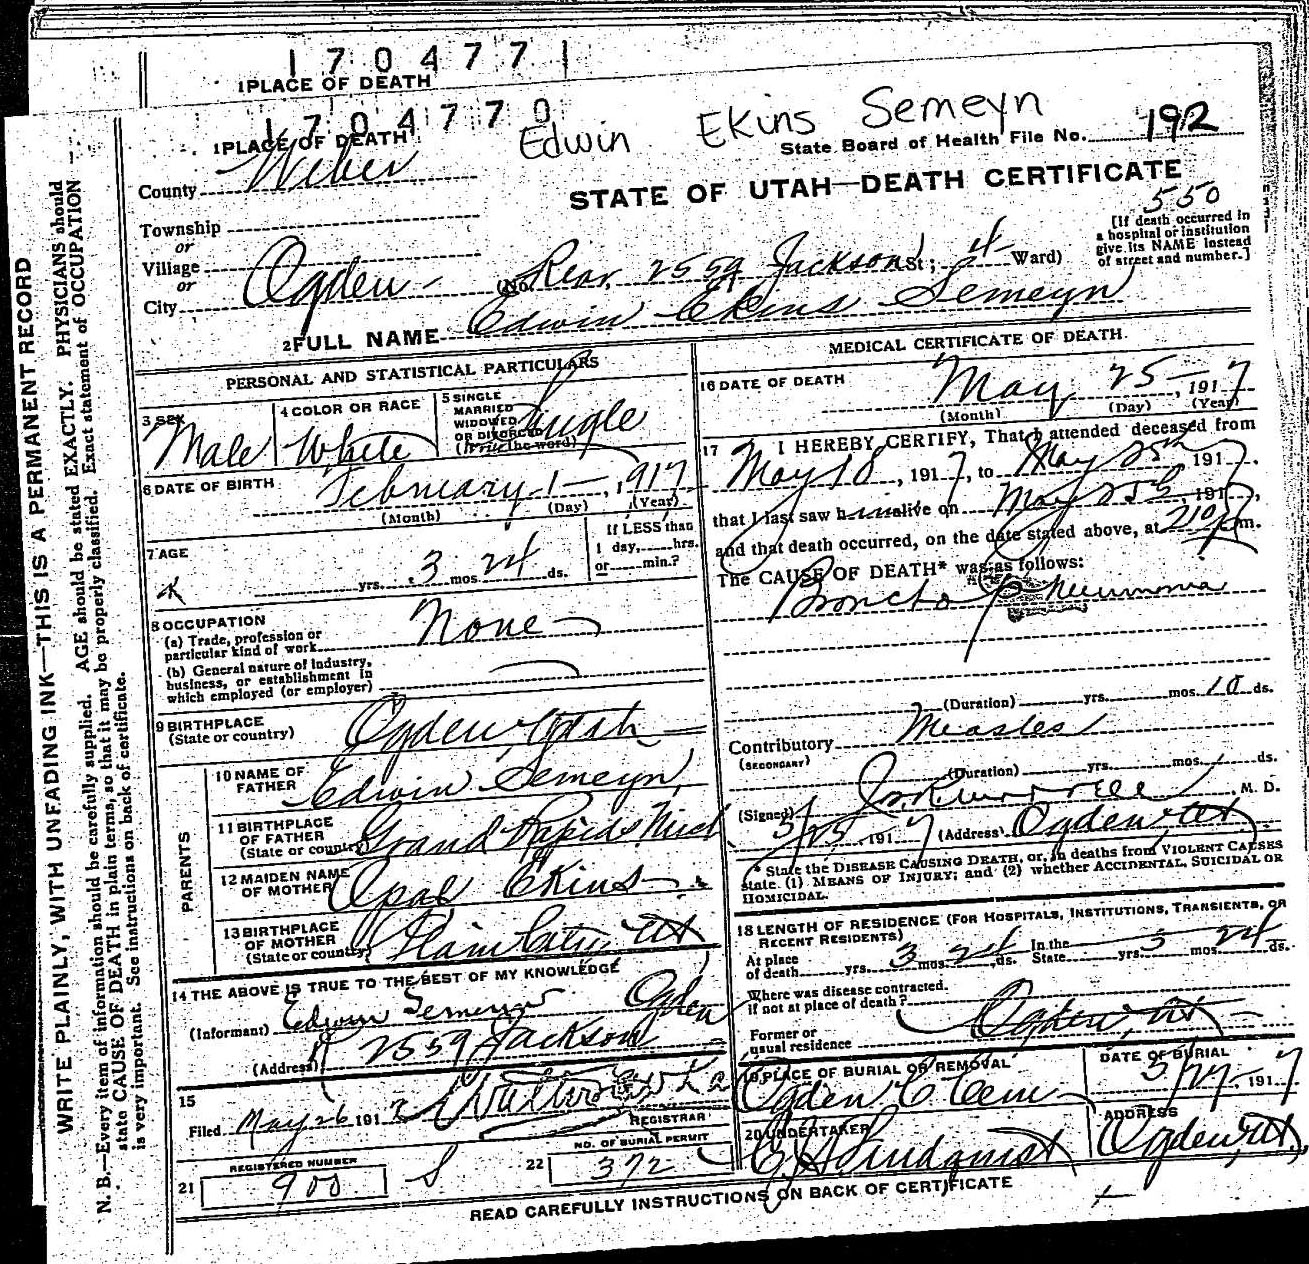 1704771
1PLACE OF DEATH
1704770
Edwin Ekins Semeyn
1PLACE OF DEATH
State Board of Health File No. 192
County Weber
STATE OF UTAH—DEATH CERTIFICATE
550
Township
or
Village
or
City Ogden (No. Rear 2559 Jackson St; 4 Ward)
[If death occurred in
a hospital or institution
give its NAME instead
of street and number.]
2FULL NAME Edwin Ekins Semeyn
PERSONAL AND STATISTICAL PARTICULARS
3 SEX Male
4 COLOR OR RACE White
5 SINGLE
MARRIED
WIDOWED
OR DIVORCED
(Write the word) Single
6 DATE OF BIRTH February 1—, 1917
(Month) (Day) (Year)
7 AGE
yrs. 3 mos. 24 ds.
If LESS than
1 day, hrs.
or min.?
8 OCCUPATION
(a) Trade, profession or
particular kind of work None
(b) General nature of industry,
business, or establishment in
which employed (or employer)
9 BIRTHPLACE
(State or country) Ogden Utah
PARENTS
10 NAME OF
FATHER Edwin Semeyn
11 BIRTHPLACE
OF FATHER
(State or country) Grand Rapids Mich
12 MAIDEN NAME
OF MOTHER Opal Ekins
13 BIRTHPLACE
OF MOTHER
(State or country) Plain City Ut
14 THE ABOVE IS TRUE TO THE BEST OF MY KNOWLEDGE
(Informant) Edwin Semeyn Ogden
(Address) R 2559 Jackson
15
Filed May 26 1917
REGISTRAR
REGISTERED NUMBER
21 900
NO. OF BURIAL PERMIT
22 372
MEDICAL CERTIFICATE OF DEATH
16 DATE OF DEATH
May 25—, 1917
(Month) (Day) (Year)
17 I HEREBY CERTIFY, That I attended deceased from
May 10, 1917, to May 25th 1917.
that I last saw him alive on May 25th, 1917,
and that death occurred, on the date stated above, at 210 P.m.
The CAUSE OF DEATH* was as follows:
Broncho Pneumonia
(Duration) yrs. mos. 10 ds.
Contributory Measles
(SECONDARY)
(Duration) yrs. mos. ds.
(Signed) M. D.
5/25 1917 (Address) Ogden, Ut
* State the DISEASE CAUSING DEATH, or, in deaths from VIOLENT CAUSES
state (1) MEANS OF INJURY; and (2) whether ACCIDENTAL, SUICIDAL OR
HOMICIDAL.
18 LENGTH OF RESIDENCE (FOR HOSPITALS, INSTITUTIONS, TRANSIENTS, OR
RECENT RESIDENTS)
At place
of death yrs. 3 mos. 24 ds. In the
State yrs. 3 mos. 24 ds.
Where was disease contracted,
if not at place of death?
Former or
usual residence Ogden, Ut
19 PLACE OF BURIAL OR REMOVAL
Ogden C Cem
DATE OF BURIAL
5/27, 1917
20 UNDERTAKER
Lindquist
ADDRESS
Ogden Ut
READ CAREFULLY INSTRUCTIONS ON BACK OF CERTIFICATE
WRITE PLAINLY, WITH UNFADING INK—THIS IS A PERMANENT RECORD
N. B.—Every item of information should be carefully supplied. AGE should be stated EXACTLY. PHYSICIANS should
state CAUSE OF DEATH in plain terms, so that it may be properly classified. Exact statement of OCCUPATION
is very important. See instructions on back of certificate.